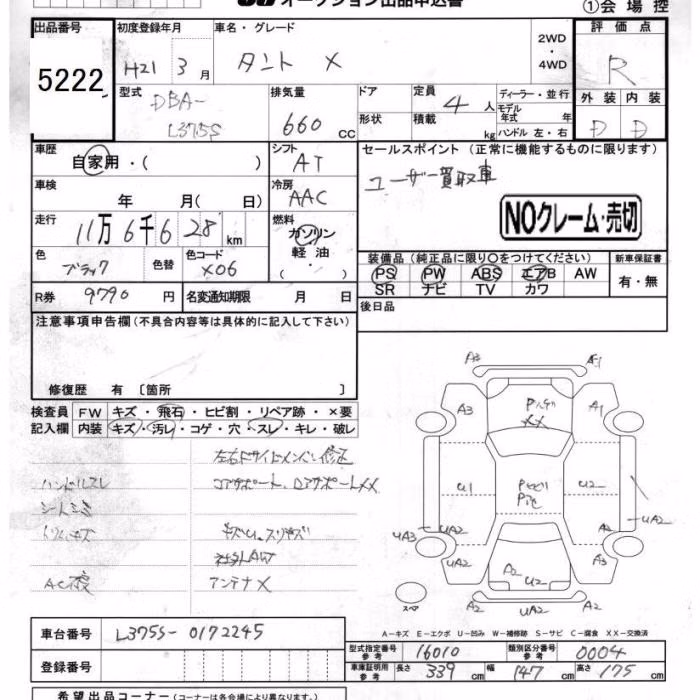 オークション出品申込書
①会場控
出品番号 初度登録年月 車名・グレード 2WD ・ 4WD 評価点
5222 H21 3月 タント X R
型式 排気量 ドア 定員 ディーラー・並行 外装 内装
DBA-L375S 660 CC 4人 モデル年式 年 D D
形状 積載 kg ハンドル 左・右
車歴 シフト セールスポイント(正常に機能するものに限ります)
自家用・( ) AT ユーザー買取車
車検 冷房
年 月( 日) AAC
NOクレーム・売切
走行 燃料
11万6千628km ガソリン 軽油 ・( )
色 色替 色コード 装備品(純正品に限り○をつけてください) 新車保証書
ブラック X06 PS PW ABS エアB AW 有・無
SR ナビ TV カワ
R券 9790円 名変通知期限 月 日 後日品
注意事項申告欄(不具合内容等は具体的に記入して下さい)
修復歴 有 [箇所 ]
検査員 FW キズ・飛石・ヒビ割・リペア跡・×要
記入欄 内装 キズ・汚レ・コゲ・穴・スレ・キレ・破レ
左右Fサイドメンバー修正
ハンドルスレ コアサポート、ロアサポートXX
シートシミ
トリムキズ キズU、スリキズ
社外AW
アンテナX
A3 A1
A3 A1
XX
U1 U2
UA3 UA2 A2 UA2
UA2 A3
A2 U2
A2 UA2 A2
スペア
A-キズ E-エクボ U-凹み W-補修跡 S-サビ C-腐食 XX-交換済
車台番号 L375S-0172245
型式指定番号 参考 16010 類別区分番号 参考 0004
登録番号
車庫証明用 参考 長さ 339cm 幅 147cm 高さ 175cm
希望出品コーナー(コーナーは各会場により異なります。)